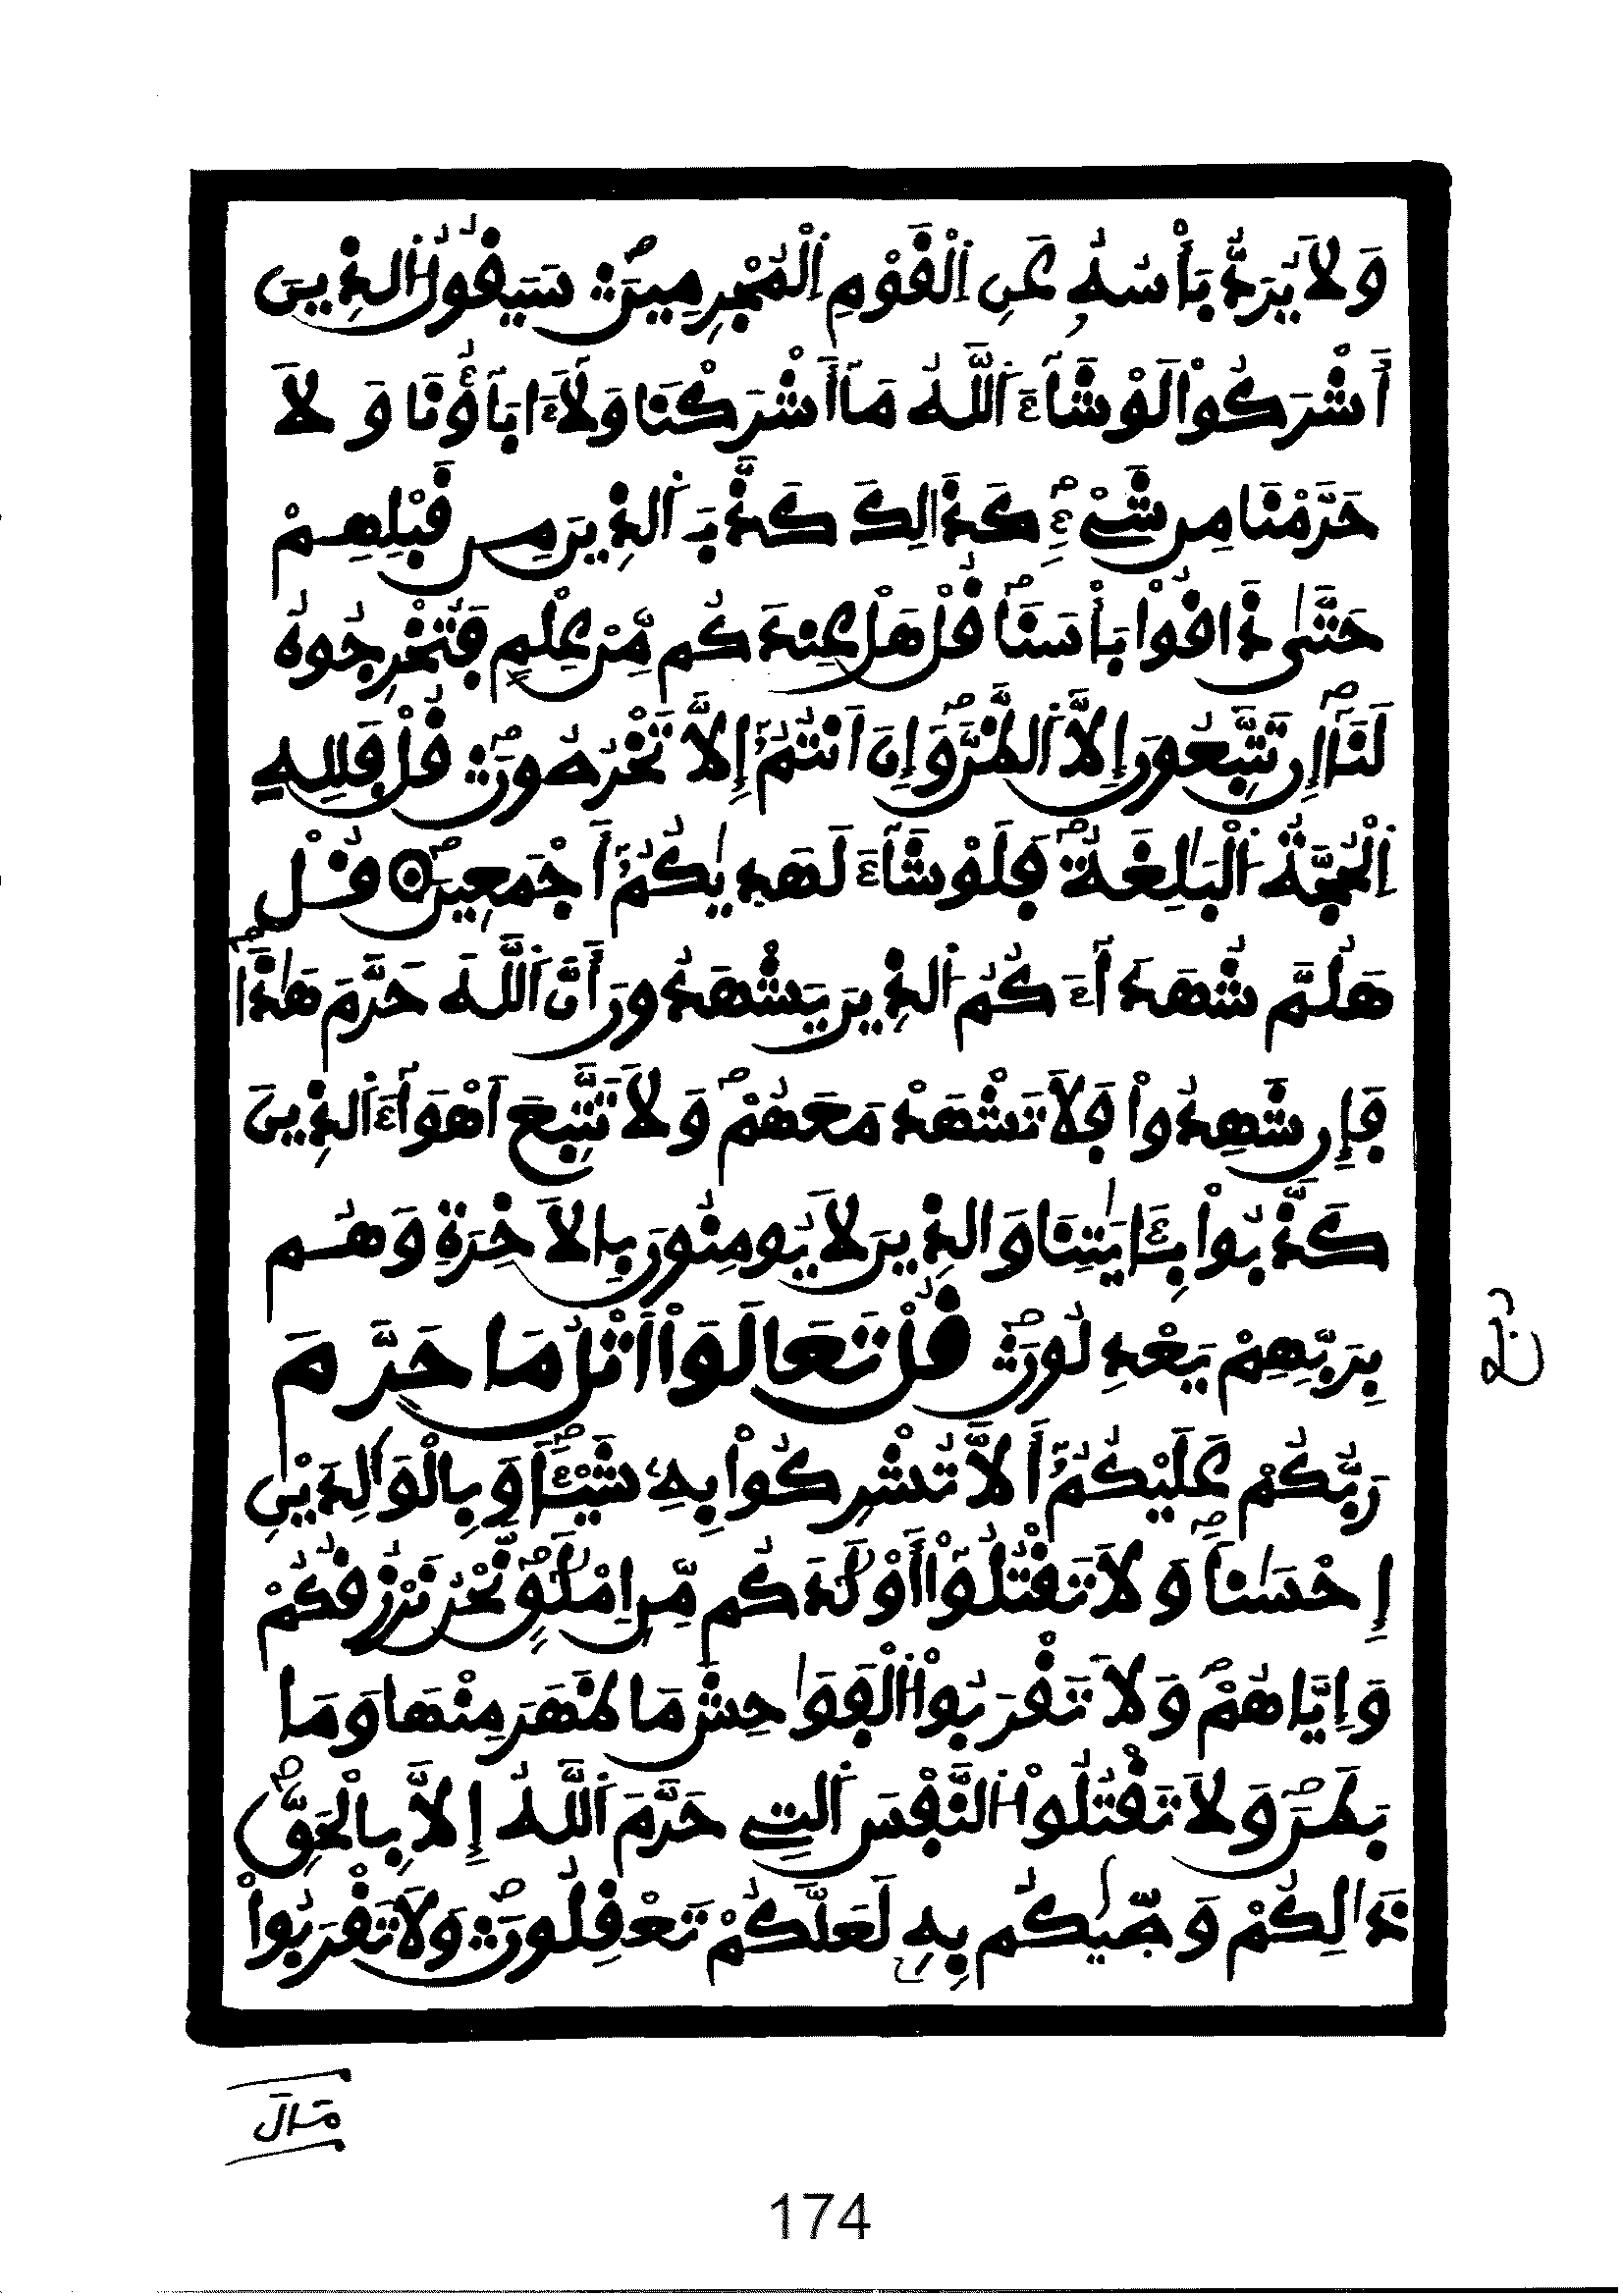 وَلَا يُرَدُّ بَأْسُهُ عَنِ اِلْقَوْمِ اِلْمُجْرِمِينَ سَيَقُولُ اُلذِينَ
أَشْرَكُواْ لَوْ شَآءَ اَللَّهُ مَآ أَشْرَكْنَا وَلَآ ءَابَآؤُنَا وَلَا
حَرَّمْنَا مِن شَيْءٍ كَذَٰلِكَ كَذَّبَ اَلذِينَ مِن قَبْلِهِمْ
حَتَّىٰ ذَاقُواْ بَأْسَنَا قُلْ هَلْ عِندَكُم مِّنْ عِلْمٍ فَتُخْرِجُوهُ
لَنَآ إِن تَتَّبِعُونَ إِلَّا اَلظَّنَّ وَإِنَ اَنتُمُۥٓ إِلَّا تَخْرُصُونَ قُلْ فَلِلهِ
اِلْحُجَّةُ اُلْبَٰلِغَةُ فَلَوْ شَآءَ لَهَدِيٰكُمُۥٓ أَجْمَعِينَ ۝ قُلْ
هَلُمَّ شُهَدَآءَكُمُ اُلذِينَ يَشْهَدُونَ أَنَّ اَللَّهَ حَرَّمَ هَٰذَا
فَإِن شَهِدُواْ فَلَا تَشْهَدْ مَعَهُمْ وَلَا تَتَّبِعَ اَهْوَآءَ اَلذِينَ
كَذَّبُواْ بِـَٔايَٰتِنَا وَالذِينَ لَا يُومِنُونَ بِالَاخِرَةِ وَهُم
بِرَبِّهِمْ يَعْدِلُونَ قُلْ تَعَالَوَاْ اتْلُ مَا حَرَّمَ
رَبُّكُمْ عَلَيْكُمُۥٓ أَلَّا تُشْرِكُواْ بِهِۦ شَيْـٔاً وَبِالْوَٰلِدَيْنِ
إِحْسَٰناً وَلَا تَقْتُلُوٓاْ أَوْلَٰدَكُم مِّنِ اِمْلَٰقٍ نَّحْنُ نَرْزُقُكُمْ
وَإِيَّاهُمْ وَلَا تَقْرَبُواْ اُلْفَوَٰحِشَ مَا ظَهَرَ مِنْهَا وَمَا
بَطَنَ وَلَا تَقْتُلُواْ اُلنَّفْسَ اَلتِے حَرَّمَ اَللَّهُ إِلَّا بِالْحَقِّ
ذَٰلِكُمْ وَصَّيٰكُم بِهِۦ لَعَلَّكُمْ تَعْقِلُونَ وَلَا تَقْرَبُواْ
مَالَ
174